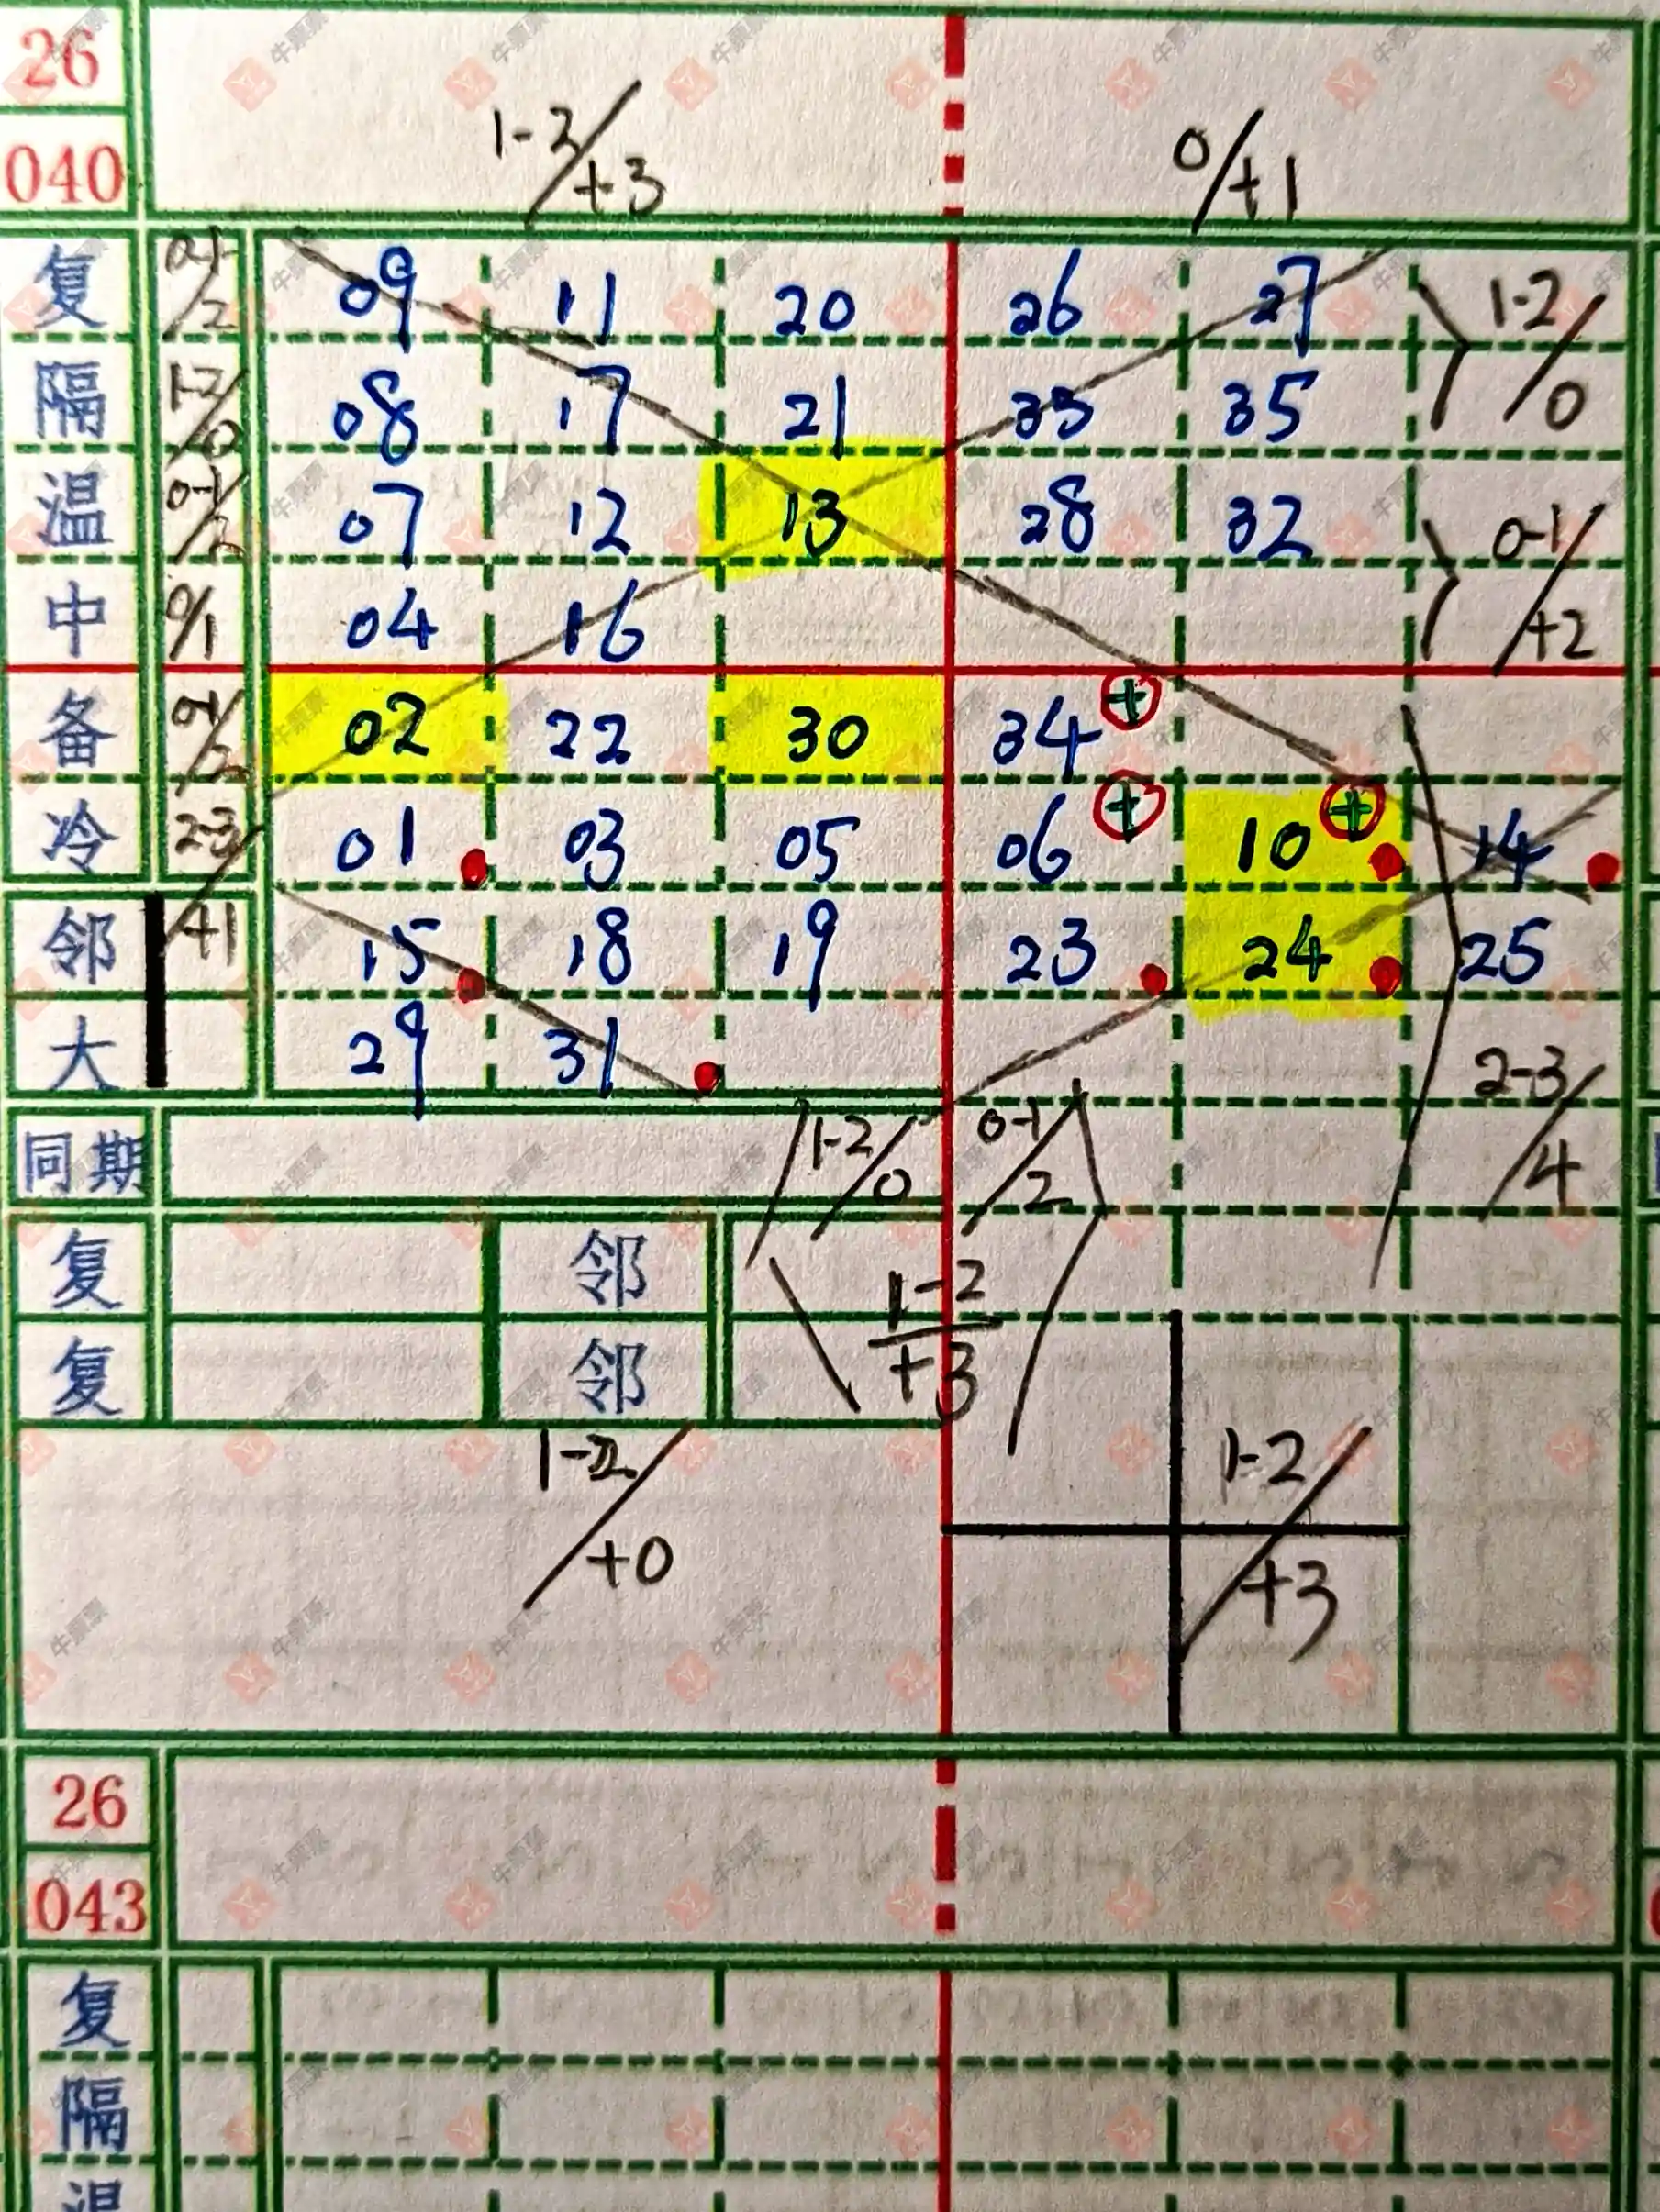 26
040
1-2/+3
0/+1
复 0-1/2 09 11 20 26 27
1-2/0
隔 1-2/0 08 17 21 33 35
温 0-1/2 07 12 13 28 32
0-1/+2
中 0/1 04 16
备 0-1/2 02 22 30 34 +
冷 2-3/+1 01 03 05 06 + 10 + 14
邻 15 18 19 23 24 25
大 29 31
2-3/4
同期 1-2/0 0-1/2
复 邻
1-2/+3
复 邻
1-2/+0
1-2/+3
26
043
复
隔
温
牛彩票